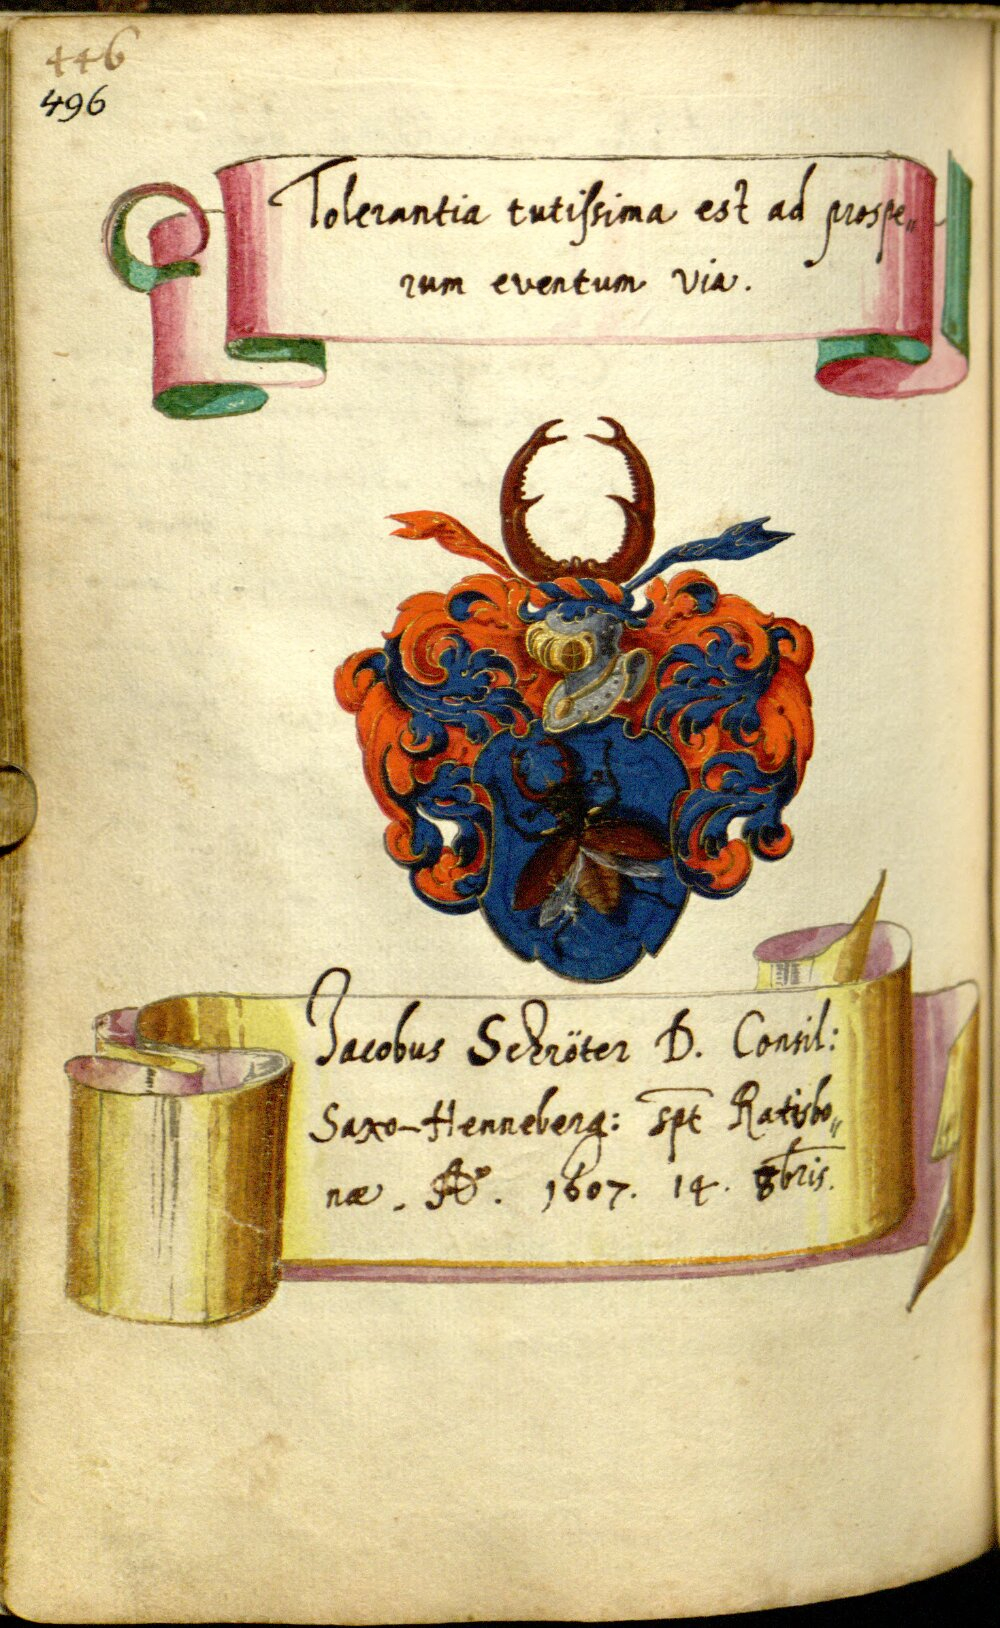 446
496
Tolerantia tutiſsima est ad prospe„
rum eventum via.
Jacobus Schröter D. Consil:
Saxo-Henneberg: spt Ratisbo„
næ. Aº. 1607. 14. 8bris.